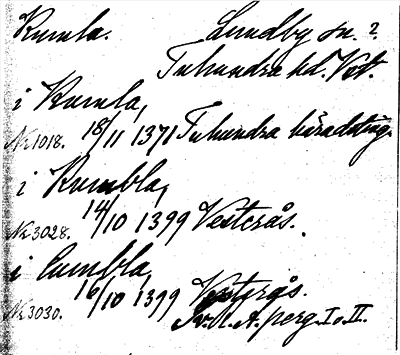 Kumla. Lundby sn. ?
Tuhundra hd. Vstm.
i Kumla,
Nr 1018. 18/11 1371 Tuhundra häradsting.
i Kumbla,
Nr 3028. 14/10 1399 Vesterås.
i Cumbla,
Nr 3030. 16/10 1399 Vesterås.
Sv. R. A. perg. I o. II.